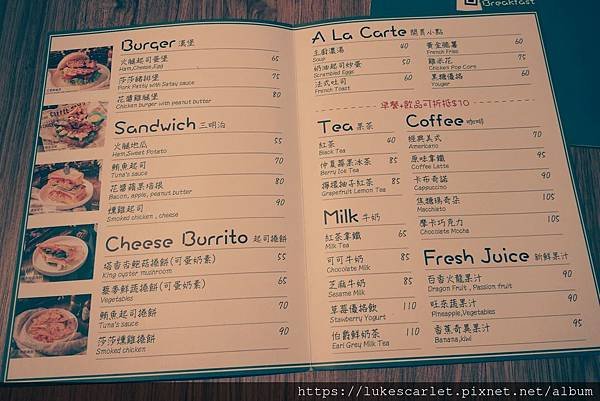 Breakfast
Burger 漢堡
火腿起司蛋堡 65
Ham,Cheese,Egg
莎莎豬排堡 75
Pork Patty with Satay sauce
花醬雞腿堡 80
Chicken burger with peanut butter
Sandwich 三明治
火腿地瓜 55
Ham,Sweet Potato
鮪魚起司 70
Tuna's sauce
花醬蘋果培根 80
Bacon, apple, peanut butter
燻雞起司 90
Smoked chicken , cheese
Cheese Burrito 起司捲餅
塔香杏鮑菇捲餅(可蛋奶素) 55
King oyster mushroom
藜麥鮮蔬捲餅(可蛋奶素) 65
Vegetables
鮪魚起司捲餅 70
Tuna's sauce
莎莎燻雞捲餅 90
Smoked chicken
A La Carte 簡易小點
主廚濃湯 40
Soup
奶油起司炒蛋 50
Scrambled Eggs
法式吐司 60
French Toast
黃金脆薯 60
French Fries
雞米花 75
Chicken Pop Corn
果糖優格 60
Youger
早餐+飲品可折抵$10
Tea 果茶
紅茶 40
Black Tea
仲夏莓果冰茶 85
Berry Ice Tea
蜂樣柚子紅茶 85
Grapefruit Lemon Tea
Milk 牛奶
紅茶拿鐵 65
Milk Tea
可可牛奶 85
Chocolate Milk
芝麻牛奶 85
Sesame Milk
草莓優格飲 110
Stawberry Yogurt
伯爵鮮奶茶 110
Earl Grey Milk Tea
Coffee 咖啡
經典美式 70
Americano
原味拿鐵 95
Coffee Latte
卡布奇諾 95
Cappuccino
焦糖瑪奇朵 105
Macchiato
摩卡巧克力 105
Chocolate Mocha
Fresh Juice 新鮮果汁
百香火龍果汁 90
Dragon Fruit , Passion fruit
旺來蔬果汁 95
Pineapple,Vegetables
香蕉奇異果汁 95
Banana,kiwi
https://lukescarlet.pixnet.net/album